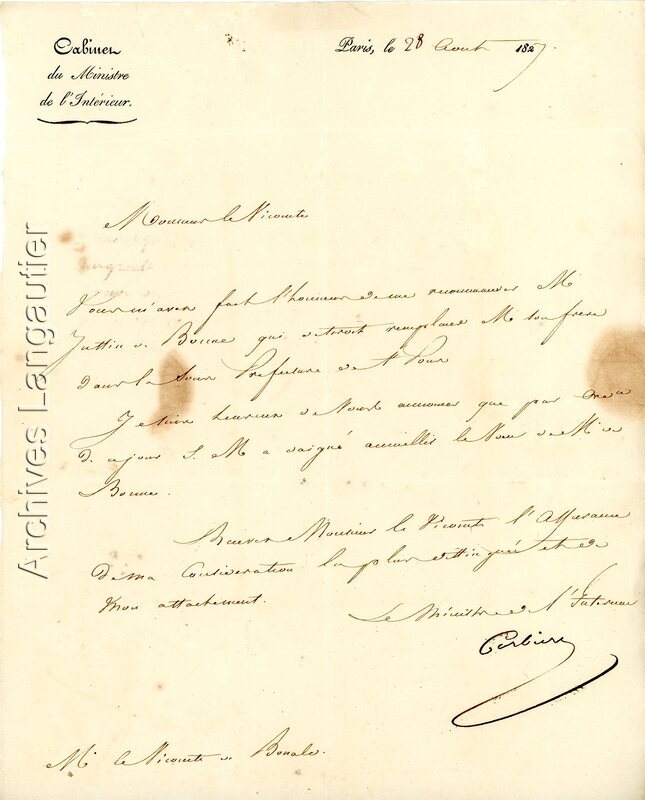 Cabinet
du Ministre
de l'Intérieur.
Paris, le 28 Aout 1827
Monsieur le Vicomte
Vous m'avez fait l'honneur de me recommander M
Justin de Bonne qui desiroit remplacer M son frere
dans la Sous Prefecture de St Pons
Je suis heureux de vous annoncer que par
de ce jour S. M a daigné accueillir le voeu de M de
Bonne.
Recevez Monsieur le Vicomte l'assurance
De ma Consideration la plus distinguée et de
mon attachement.
Le Ministre de l'Interieur
Corbiere
Mr le Vicomte de Bonald.
Archives Langautier